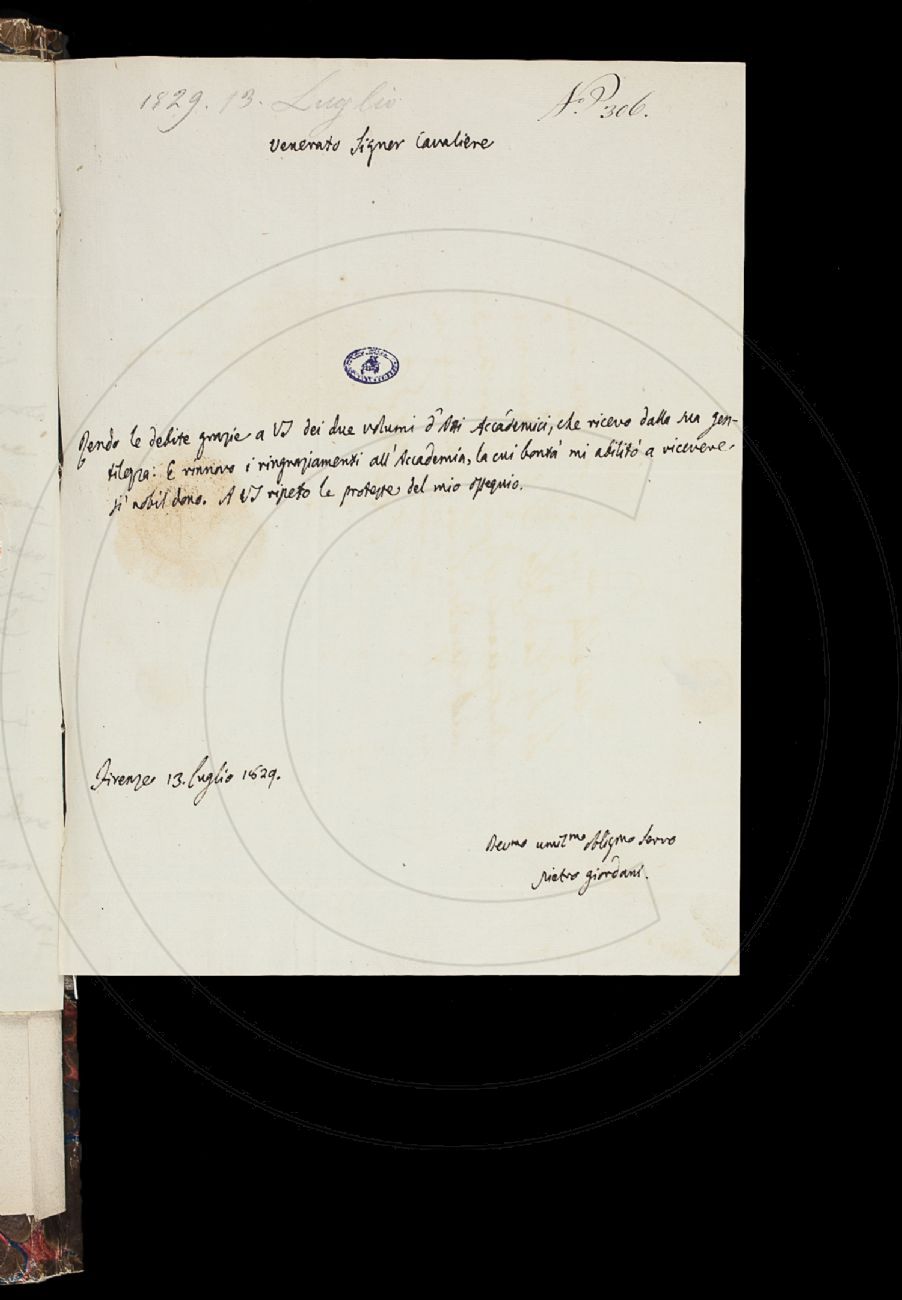 1829. 13. Luglio
N.º P. 306.
venerato Signor Cavaliere
Rendo le debite grazie a VS dei due volumi d'Atti Accademici, che ricevo dalla sua gen-
tilezza: E rinnovo i ringraziamenti all'Accademia, la cui bontà mi abilitò a ricevere
sì nobil dono. A VS ripeto le proteste del mio ossequio.
Firenze 13. luglio 1829.
Devmo umilmo obligmo servo
pietro giordani.